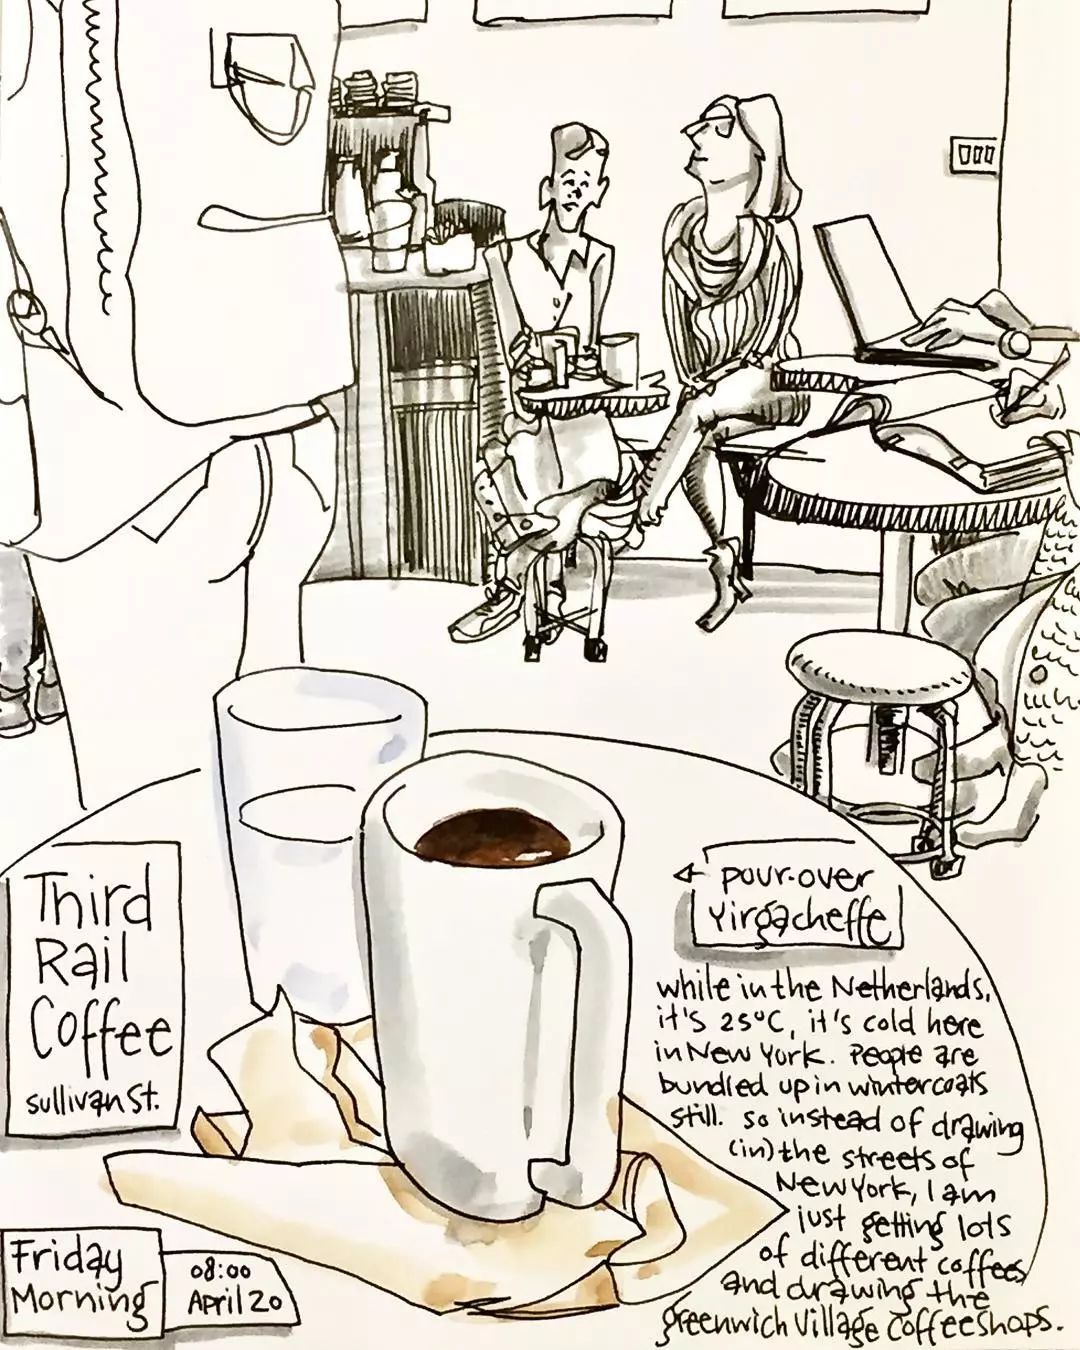 Third
Rail
Coffee
sullivan St.
pour-over
Yirgacheffe
while in the Netherlands,
it's 25°C, it's cold here
in New York. People are
bundled up in wintercoats
still. so instead of drawing
(in) the streets of
New York, I am
just getting lots
of different coffees
and drawing the
greenwich Village Coffeeshops.
Friday
Morning
08:00
April 20